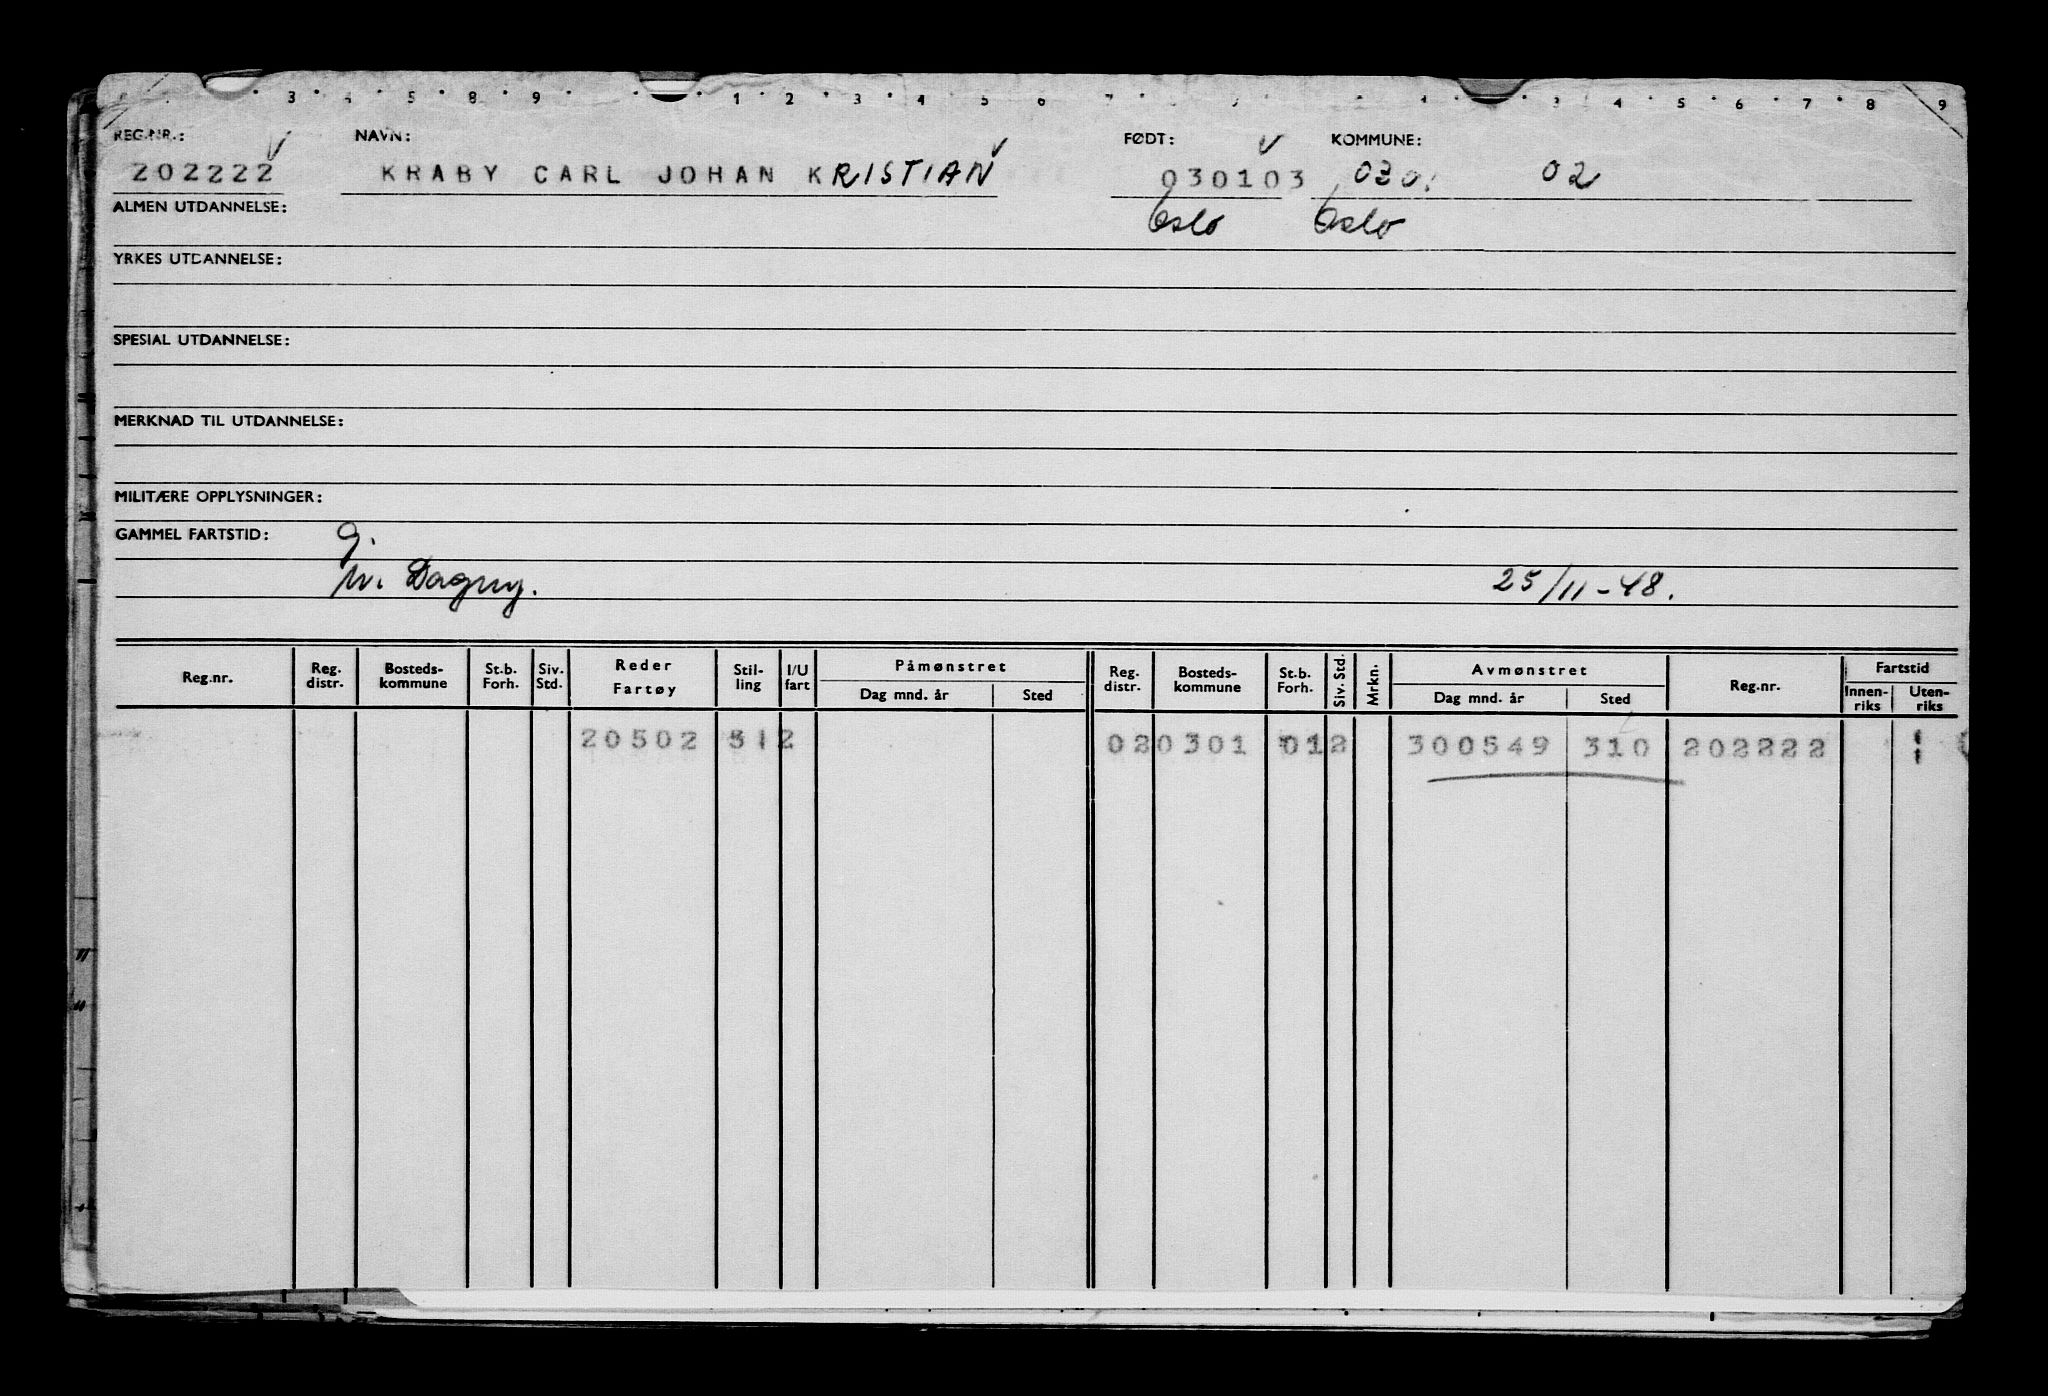 3 4 5 8 9 1 2 3 4 5 6 7 3 4 5 6 7 8 9
REG.NR.: NAVN: FØDT: KOMMUNE:
202222 KRABY CARL JOHAN KRISTIAN 030103 030. 02
ALMEN UTDANNELSE: Oslo Oslo
YRKES UTDANNELSE:
SPESIAL UTDANNELSE:
MERKNAD TIL UTDANNELSE:
MILITÆRE OPPLYSNINGER:
GAMMEL FARTSTID: g.
m. Dagny. 25/11-48.
Reg.nr. Reg. distr. Bosteds- kommune St.b. Forh. Siv. Std. Reder Fartøy Stil- ling I/U fart Påmønstret Dag mnd. år Sted Reg. distr. Bosteds- kommune St.b. Forh. Siv. Std. Mrkn. Avmønstret Dag mnd. år Sted Reg.nr. Fartstid Innen- riks Uten- riks
20502 512 020301 012 300549 310 202222